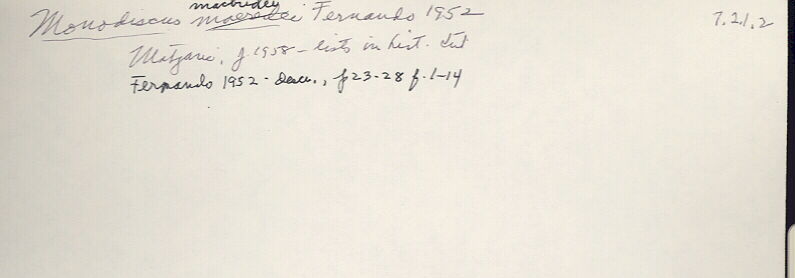 macbridei
Monodiscus macredei Fernando 1952 7.2.1.2
1958 - lists in hist.
Fernando 1952 - Descr., p 23-28 f. 1-14